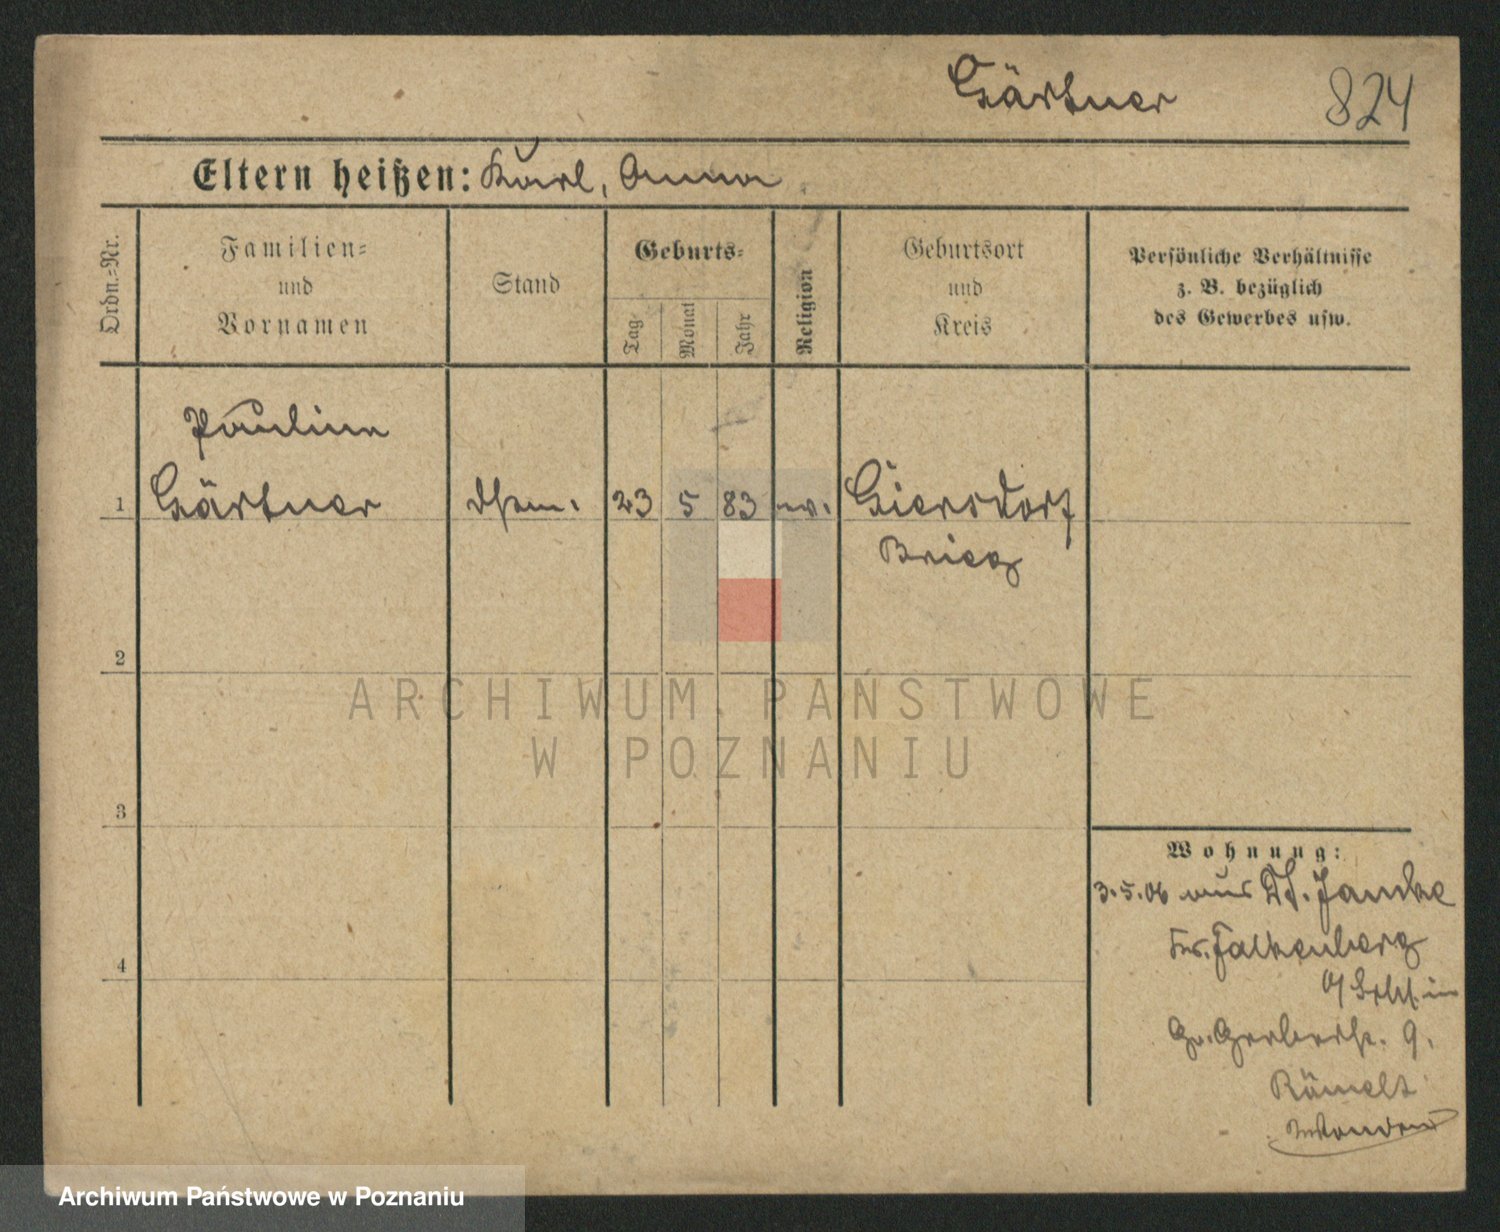 Gärtner 824
Eltern heißen: Karl, Anna
Ordn.-Nr.
Familien-
und
Vornamen
Stand
Geburts-
Tag
Monat
Jahr
Religion
Geburtsort
und
Kreis
Persönliche Verhältnisse
z. B. bezüglich
des Gewerbes usw.
Pauline
1 Gärtner 23 5 83 Giersdorf
Brieg
2
ARCHIWUM PAŃSTWOWE
W POZNANIU
3
Wohnung:
3.5.06 aus Dt. Jamke
Kr. Falkenberg
in
Gr. Gerberstr. 9.
4
Archiwum Państwowe w Poznaniu